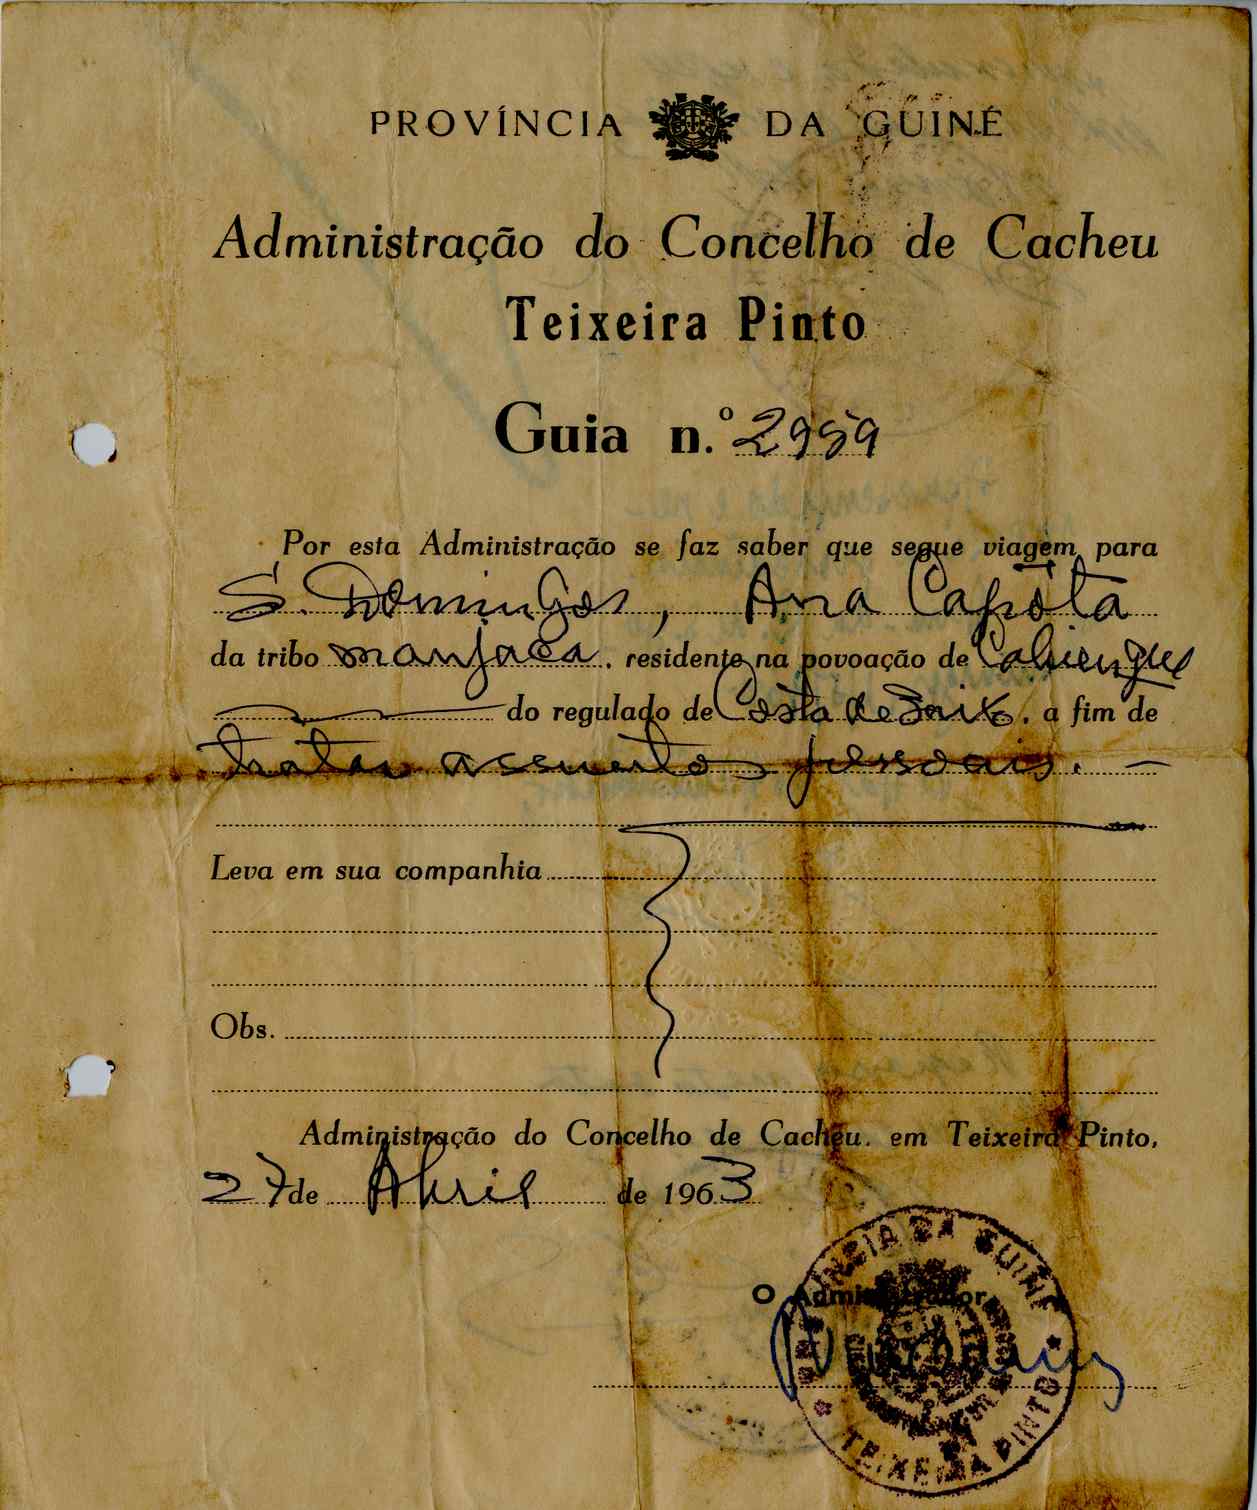 PROVÍNCIA DA GUINÉ
Administração do Concelho de Cacheu
Teixeira Pinto
Guia n.º 2959
Por esta Administração se faz saber que segue viagem para
S. Domingos, Ana Capóta
da tribo manjaca, residente na povoação de
do regulado de Costa de Baixo, a fim de
tratar assuntos pessoais. —
Leva em sua companhia
Obs.
Administração do Concelho de Cacheu, em Teixeira Pinto,
27 de Abril de 1963
O Administrador,
PROVÍNCIA DA GUINÉ
TEIXEIRA PINTO